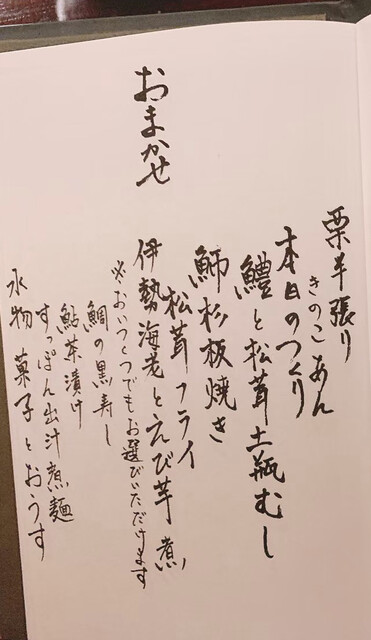 おまかせ
栗 張り
きのこあん
本日のつくり
鱧と松茸土瓶むし
鰤杉板焼き
松茸フライ
伊勢海老とえび芋煮
※おいくつでもお選びいただけます
鯛の黒寿し
鮎茶漬け
すっぽん出汁煮麺
水物 菓子とおうす